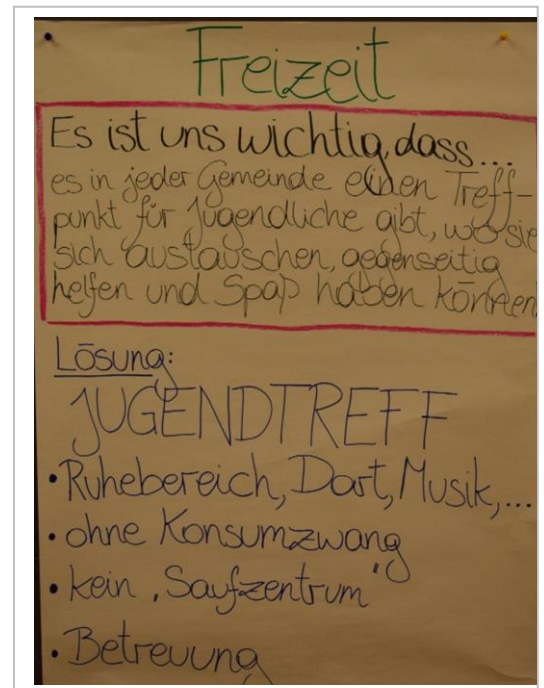 Freizeit
Es ist uns wichtig, dass...
es in jeder Gemeinde einen Treff-
punkt für Jugendliche gibt, wo sie
sich austauschen, gegenseitig
helfen und Spaß haben können
Lösung:
JUGENDTREFF
• Ruhebereich, Dart, Musik,...
• ohne Konsumzwang
• kein "Saufzentrum"
• Betreuung